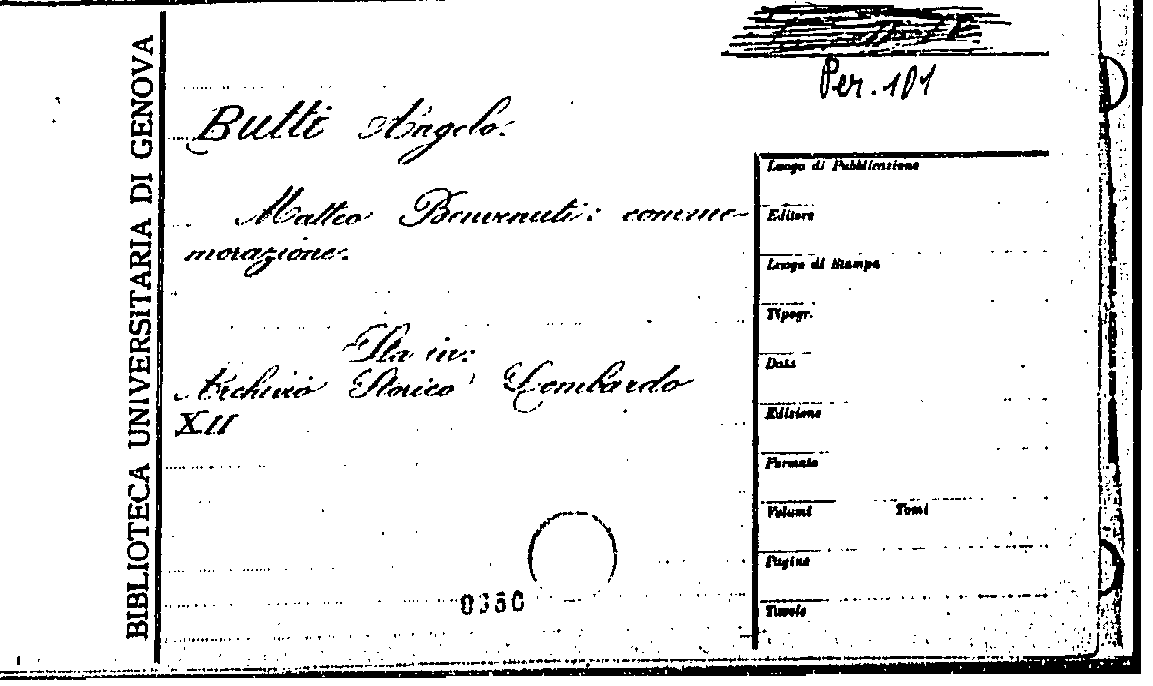 BIBLIOTECA UNIVERSITARIA DI GENOVA
Per. 101
Butti Angelo.
Matteo Benvenuti: comme-
morazione.
Sta in:
Archivio Storico Lombardo
XII
Luogo di Pubblicazione
Editore
Luogo di Stampa
Tipogr.
Data
Edizione
Formato
Volumi Tomi
Pagine
Tavole